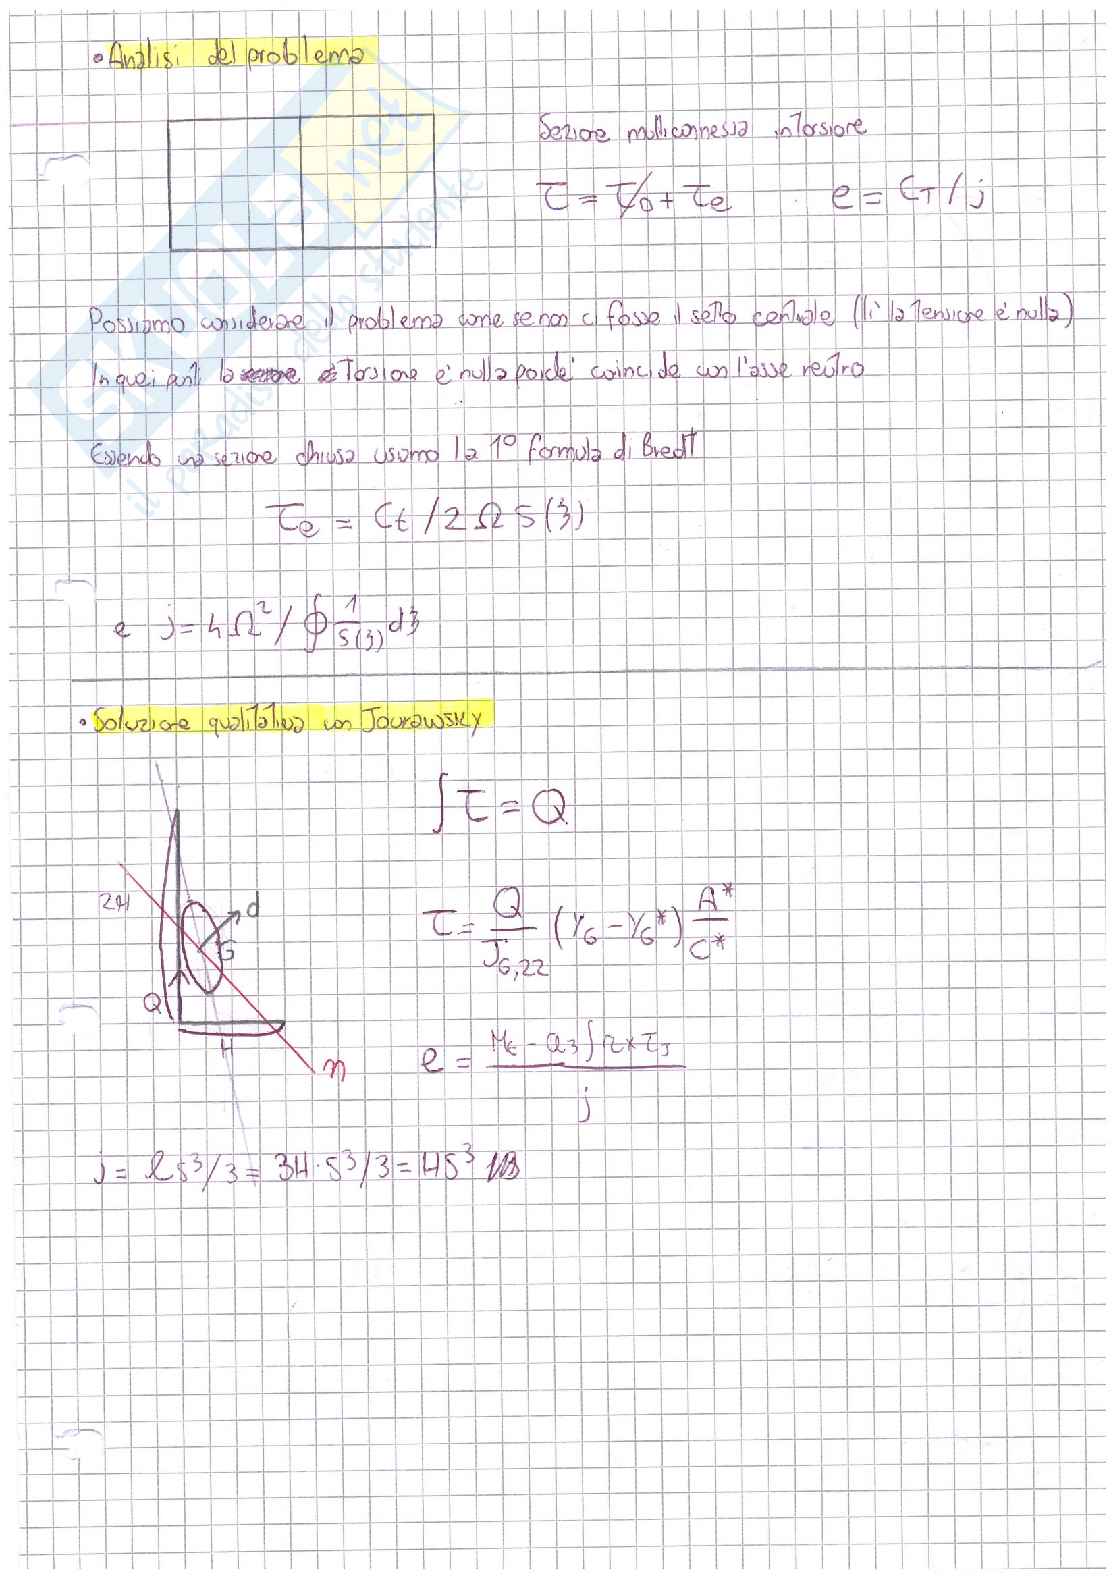 • Analisi del problema
Sezione multiconnessa in Torsione
τ = τ/0 + τe   e = CT / j
Possiamo considerare il problema come se non ci fosse il setto centrale (lì la tensione è nulla)
In quei punti la Torsione è nulla poiché coincide con l'asse neutro
Essendo una sezione chiusa usiamo la 1° formula di Bredt
τe = Ct / 2 Ω s(ʒ)
e j = 4 Ω² / ∮ 1/s(ʒ) dʒ
• Soluzione qualitativa con Jourawsky
∫ τ = Q
2H
d
G
Q
H
n
τ = Q/J_G,22 (Y_G - Y_G*) A*/C*
e = Mt - Q3 ∫ r × τJ / j
j = l s³/3 = 3H · s³/3 = H s³
SKUOLA.net
il paradiso dello studente